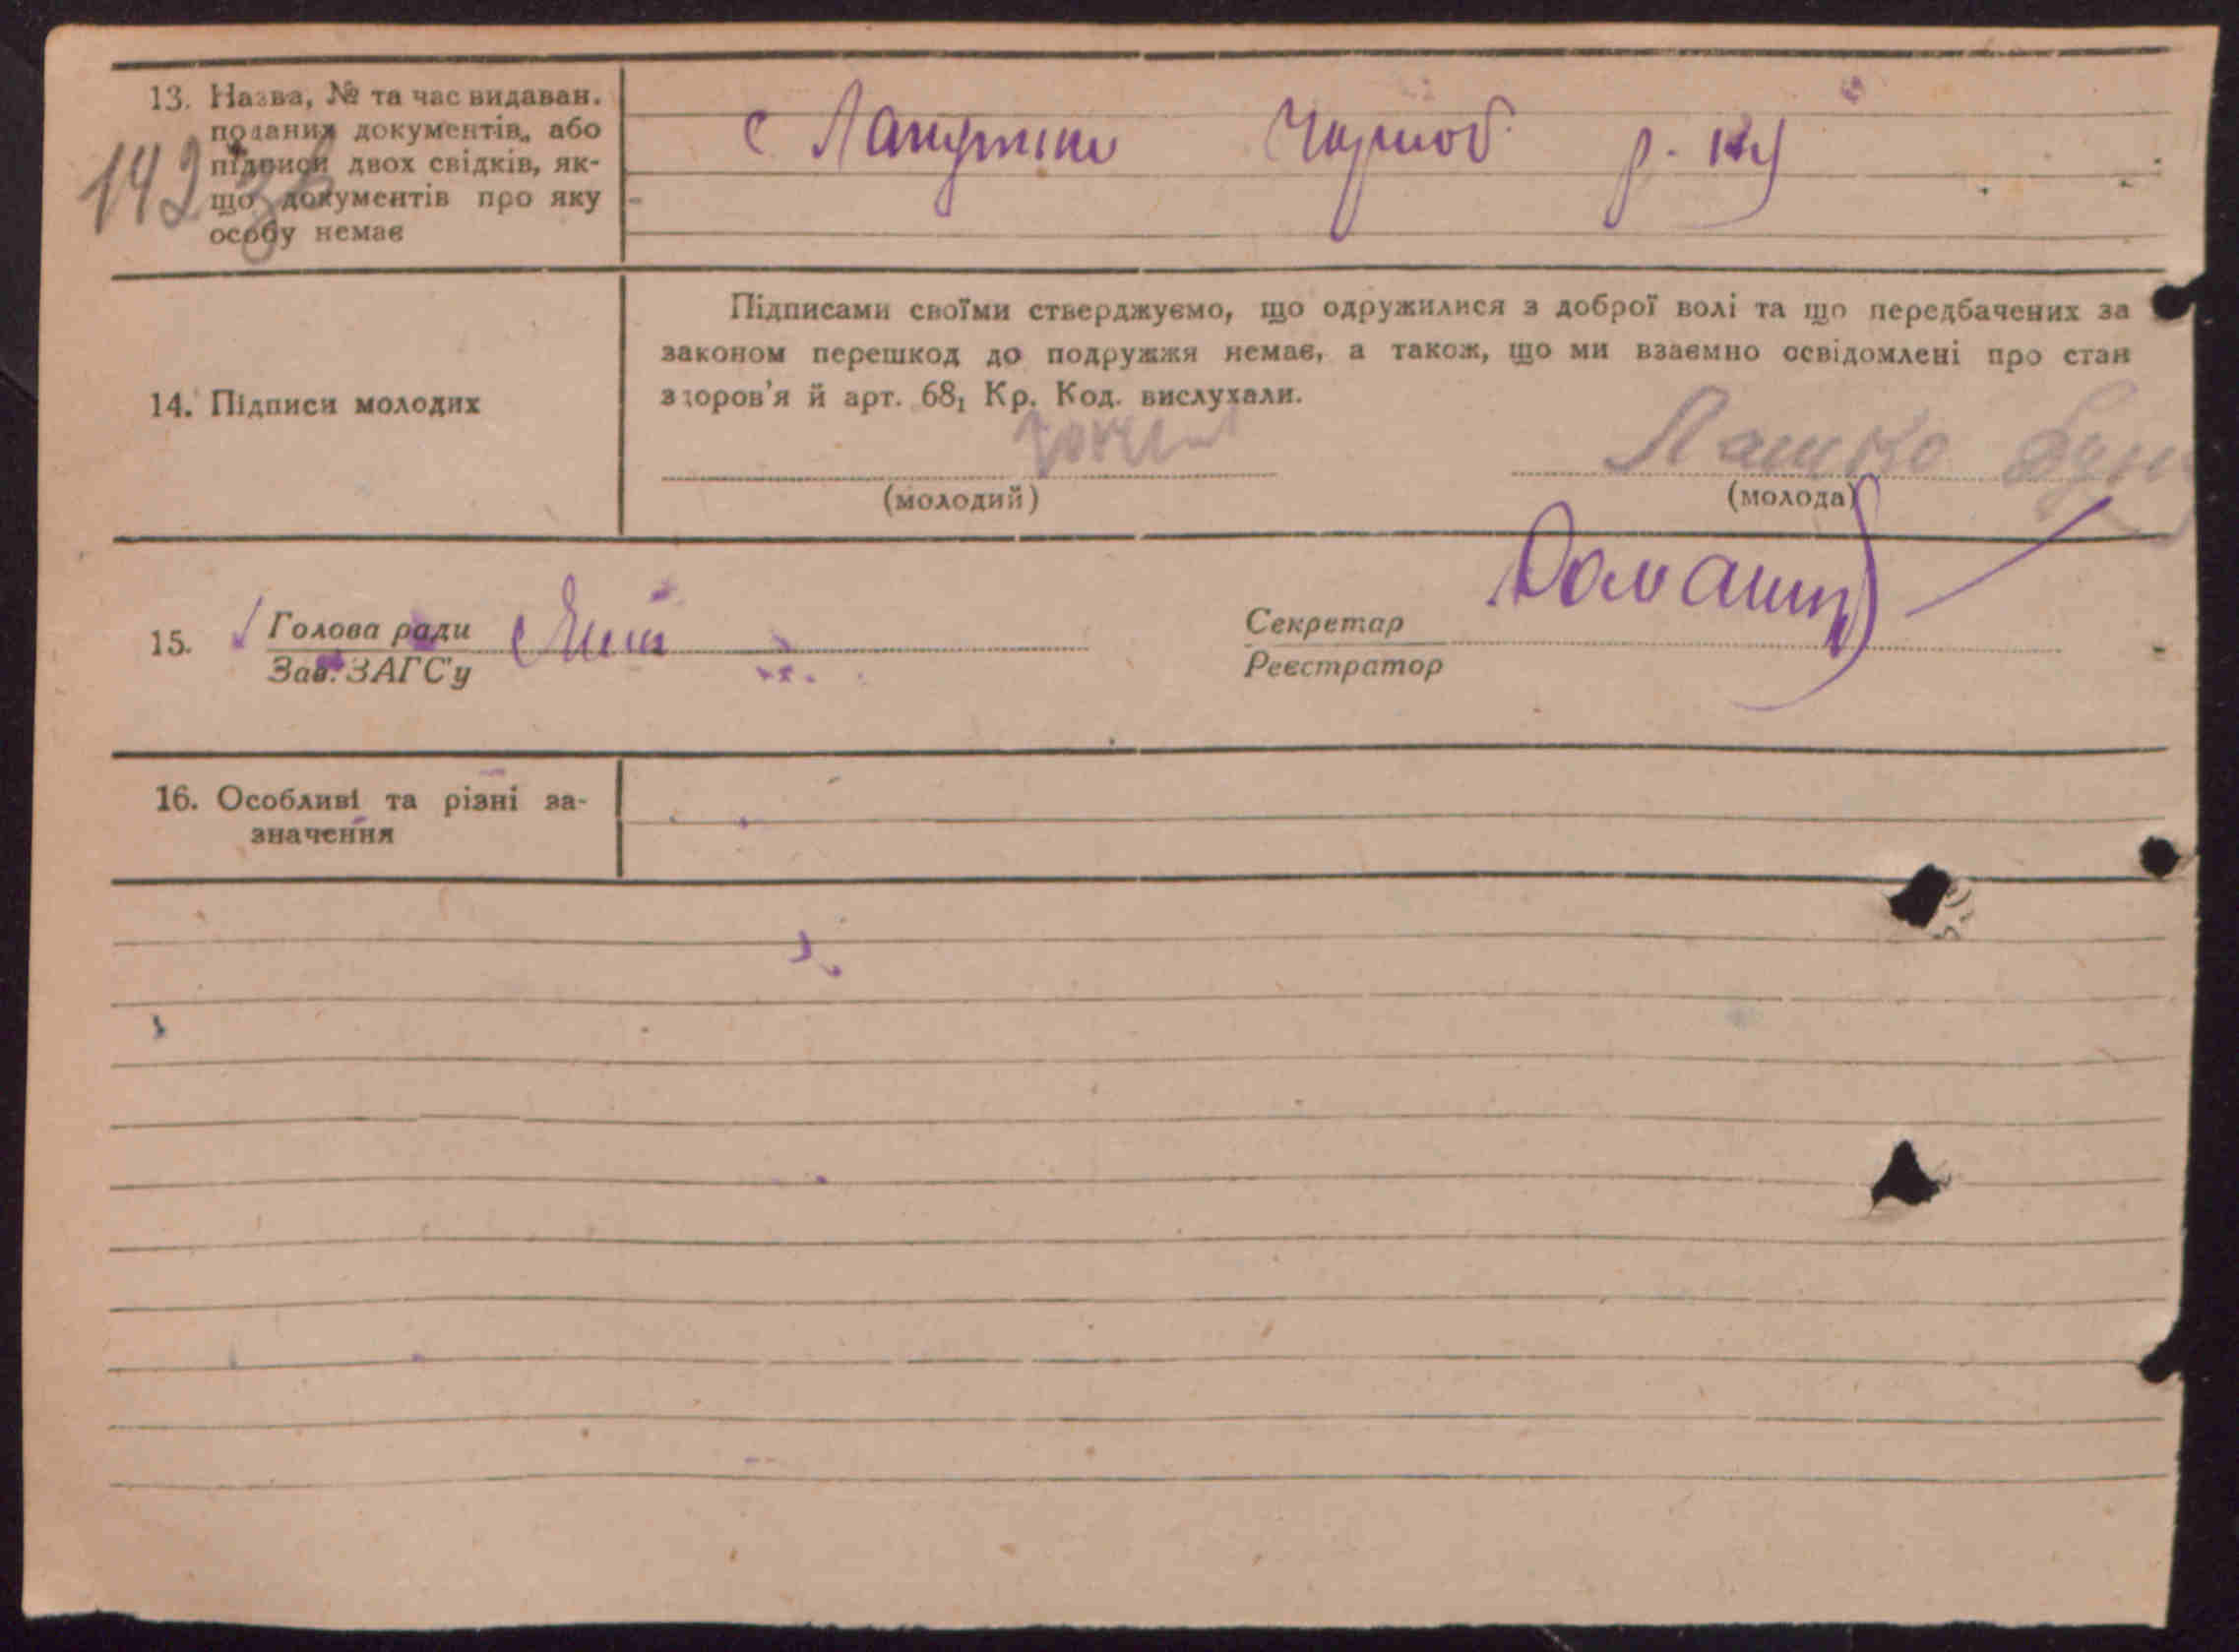 13. Назва, № та час видаван.
поданих документів, або
підписи двох свідків, як-
що документів про яку
особу немає
с р.
142
Підписами своїми стверджуємо, що одружилися з доброї волі та що передбачених за
законом перешкод до подружжя немає, а також, що ми взаємно освідомлені про стан
здоров'я й арт. 68₁ Кр. Код. вислухали.
14. Підписи молодих
Лашко
(молодий) (молода)
15. Голова ради Секретар
Зав. ЗАГС'у Реєстратор
16. Особливі та різні за-
значення